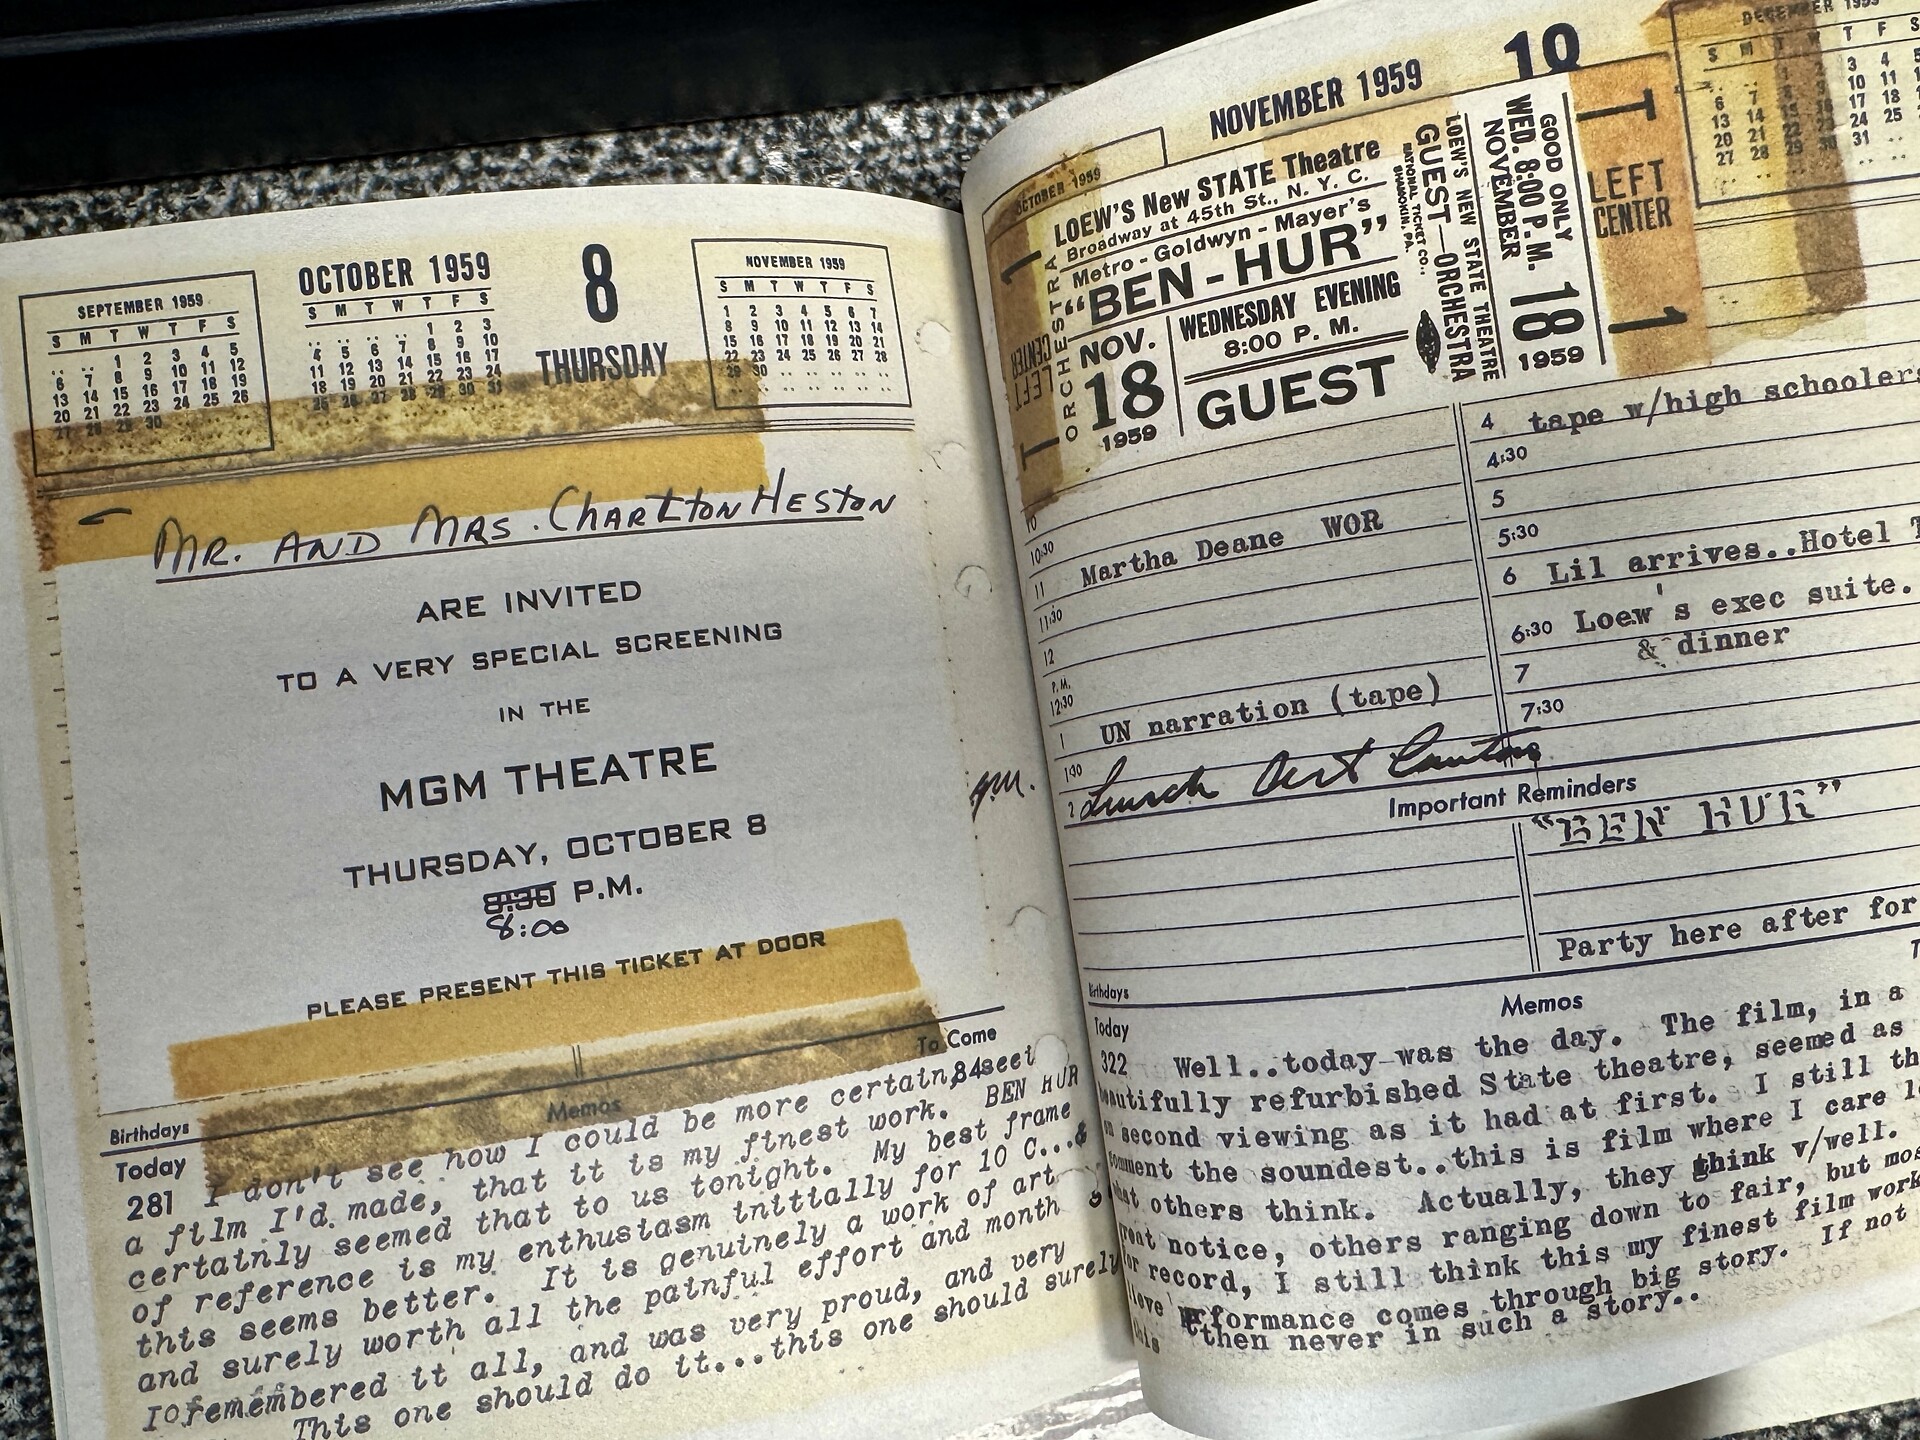 SEPTEMBER 1959
S M T W T F S
.. .. 1 2 3 4 5
6 7 8 9 10 11 12
13 14 15 16 17 18 19
20 21 22 23 24 25 26
27 28 29 30
OCTOBER 1959
S M T W T F S
1 2 3
4 5 6 7 8 9 10
11 12 13 14 15 16 17
18 19 20 21 22 23 24
25 26 27 28 29 30 31
8
THURSDAY
NOVEMBER 1959
S M T W T F S
1 2 3 4 5 6 7
8 9 10 11 12 13 14
15 16 17 18 19 20 21
22 23 24 25 26 27 28
29 30
MR. AND MRS. CHARLTON HESTON
ARE INVITED
TO A VERY SPECIAL SCREENING
IN THE
MGM THEATRE
THURSDAY, OCTOBER 8
8:30 P.M.
8:00
PLEASE PRESENT THIS TICKET AT DOOR
To Come
Memos
84
Birthdays
Today
281 I don't see how I could be more certain, seei
a film I'd made, that it is my finest work. BEN HUR
certainly seemed that to us tonight. My best frame
of reference is my enthusiasm initially for 10 C...&
this seems better. It is genuinely a work of art
and surely worth all the painful effort and month
I remembered it all, and was very proud, and very
This one should do it...this one should surely
NOVEMBER 1959
OCTOBER 1959
DECEMBER 1959
S M T W T F S
1 2 3 4 5
6 7 8 9 10 11
13 14 15 16 17 18
20 21 22 23 24 25
27 28 29 30 31
LOEW'S New STATE Theatre
Broadway at 45th St., N. Y. C.
Metro - Goldwyn - Mayer's
"BEN-HUR"
NOV.
18
1959
WEDNESDAY EVENING
8:00 P. M.
GUEST
ORCHESTRA
LEFT
CENTER
1
LOEW'S NEW STATE THEATRE
GUEST—ORCHESTRA
NATIONAL TICKET CO.,
SHAMOKIN, PA.
GOOD ONLY
WED. 8:00 P. M.
NOVEMBER
18
1959
LEFT
CENTER
1
10
10:30
11 Martha Deane WOR
11:30
12
P.M.
12:30
1 UN narration (tape)
1:30
2 Lunch Art
4 tape w/high schoolers
4:30
5
5:30
6 Lil arrives..Hotel T
6:30 Loew's exec suite.
& dinner
7
7:30
Important Reminders
"BEN HUR"
Party here after for
Birthdays
Memos
Today
322 Well..today was the day. The film, in a
beautifully refurbished State theatre, seemed as
second viewing as it had at first. I still th
comment the soundest..this is film where I care le
others think. Actually, they think v/well.
notice, others ranging down to fair, but mos
for record, I still think this my finest film work
performance comes through big story. If not
then never in such a story..